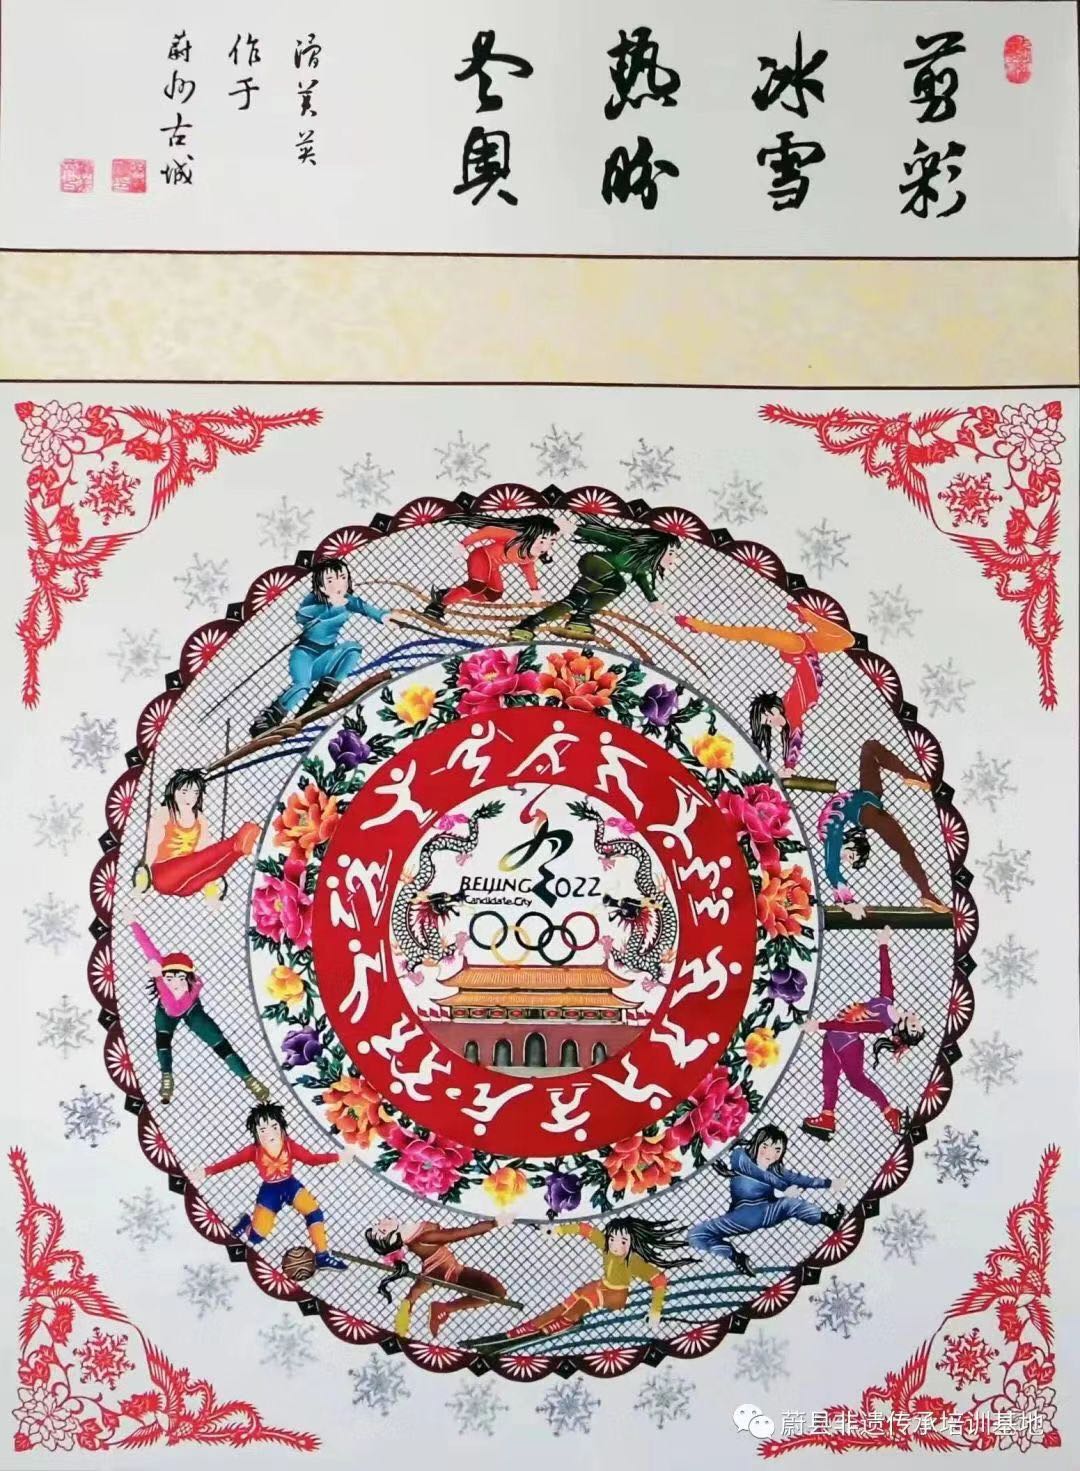 剪彩
冰雪
熱盼
冬奥
滑美英
作于
蔚州古城
BEIJING 2022
Candidate City
蔚县非遗传承培训基地